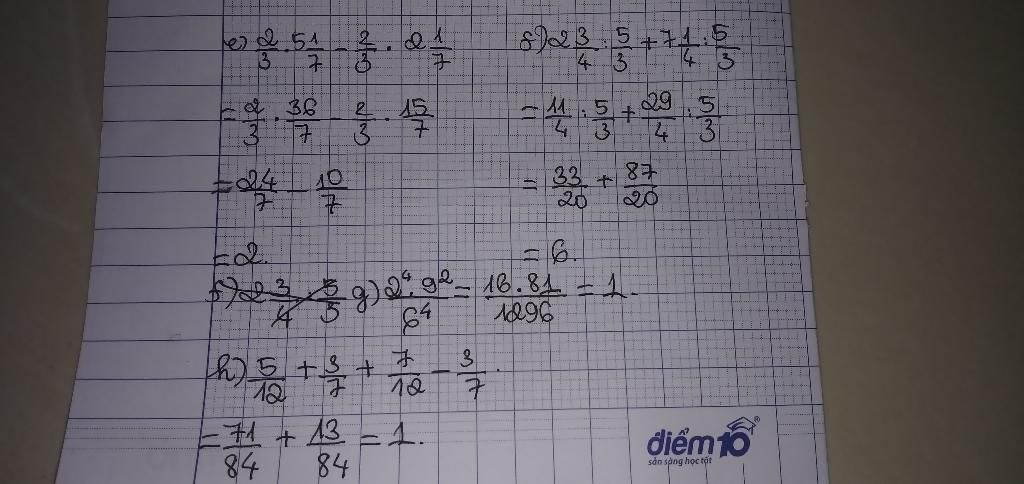 e) 2/3 . 5 1/7 - 2/3 . 2 1/7
= 2/3 . 36/7 - 2/3 . 15/7
= 24/7 - 10/7
= 2.
f) 2 3/4 : 5/3 + 7 1/4 : 5/3
= 11/4 : 5/3 + 29/4 : 5/3
= 33/20 + 87/20
= 6.
f) 2 3/4 : 5/3
g) 2^4 . 9^2 / 6^4 = 16 . 81 / 1296 = 1.
h) 5/12 + 3/7 + 7/12 - 3/7.
= 71/84 + 13/84 = 1.
điểm 10®
sẵn sàng học tốt